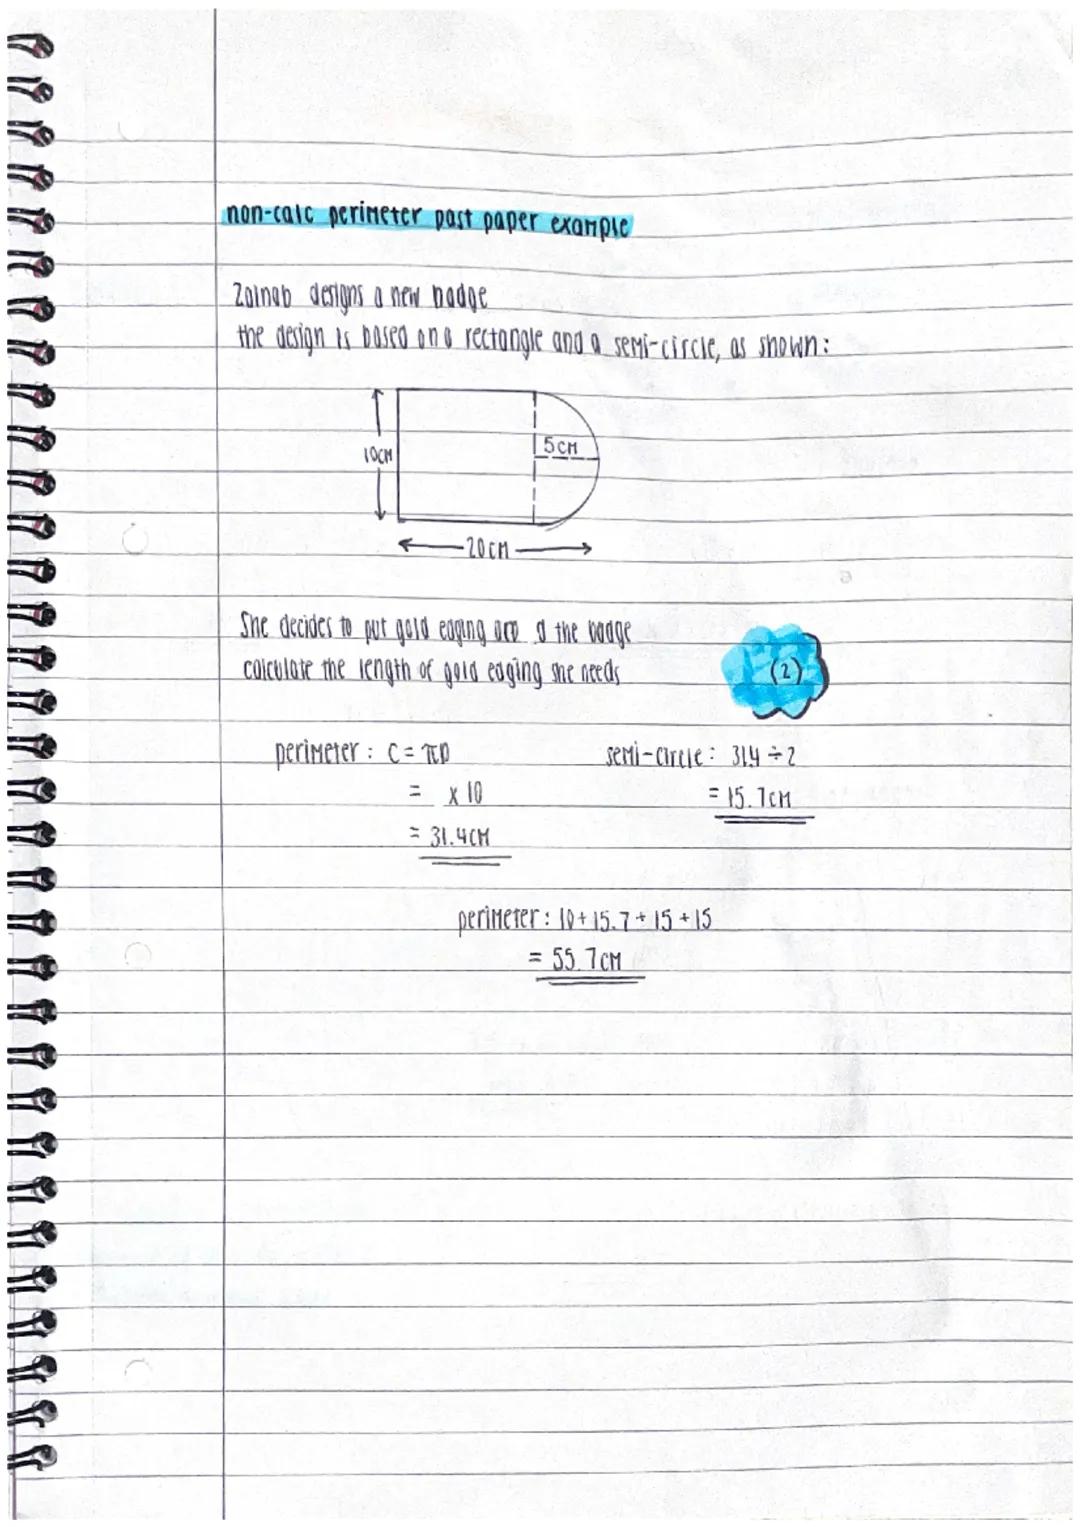 non-calc perimeter past paper example
Zainab designs a new badge
the design is based on a rectangle and a semi-circle, as shown:
10cm
5cm
20cm
She decides to put gold edging the badge
calculate the length of gold edging she needs
(2)
perimeter : C = πD
= x 10
= 31.4cm
semi-circle : 31.4 ÷ 2
= 15.7cm
perimeter : 10 + 15.7 + 15 + 15
= 55.7cm